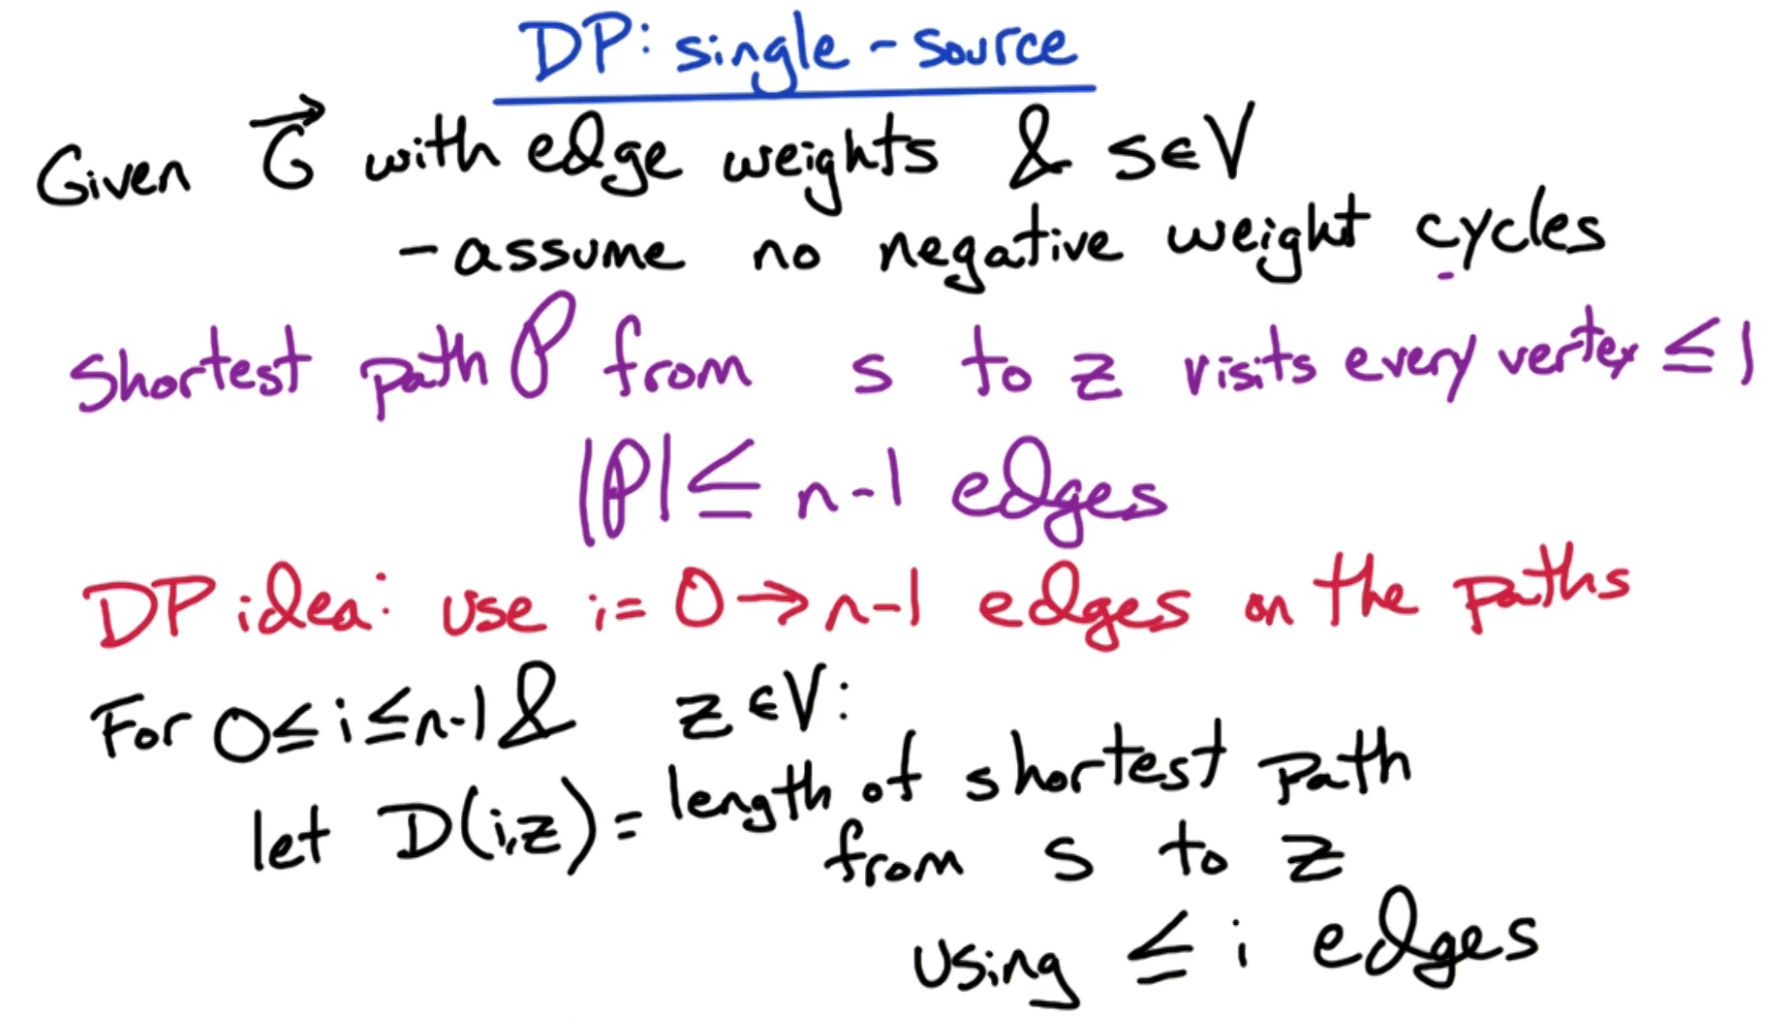 DP: single-source
Given G⃗ with edge weights & s∈V
- assume no negative weight cycles
Shortest path P from s to z visits every vertex ≤ 1
|P| ≤ n-1 edges
DP idea: use i = 0 → n-1 edges on the paths
For 0 ≤ i ≤ n-1 & z∈V:
let D(i,z) = length of shortest path
from s to z
using ≤ i edges